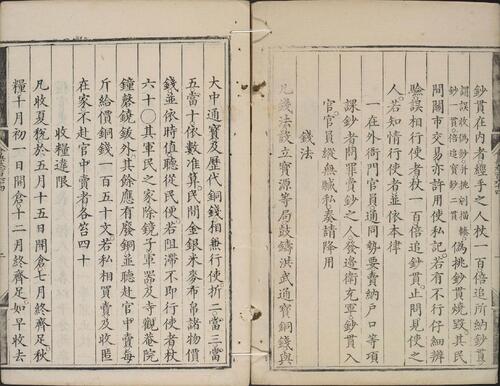 鈔貫在內者經手之人杖一百倍追所納鈔貫
謂誤收偽鈔并挑剜描輳
鈔一貫倍追寶鈔二貫
偽挑鈔貫燒毀其民
間關市交易亦許用使私記若有不行仔細辨
驗誤相行使者杖一百倍追鈔貫止問見使之
人若知情行使者並依本律
一在外衙門官員通同勢要賣納戶口等項
課鈔者問罪賣鈔之人發邊衛充軍鈔貫入
官官員縱無贓私奏請降用
錢法
凡錢法設立寶源等局鼓鑄洪武通寶銅錢與
大中通寶及歷代銅錢相兼行使折二當三當
五當十依數准算民間金銀米麥布帛諸物價
錢並依時值聽從民便若阻滯不即行使者杖
六十〇其軍民之家除鏡子軍器及寺觀菴院
鐘磬鐃鈸外其餘應有廢銅並聽赴官中賣每
斤給價銅錢一百五十文若私相買賣及收匿
在家不赴官中賣者各笞四十
收糧違限
凡收夏稅於五月十五日開倉七月終齊足秋
糧十月初一日開倉十二月終齊足如早收去